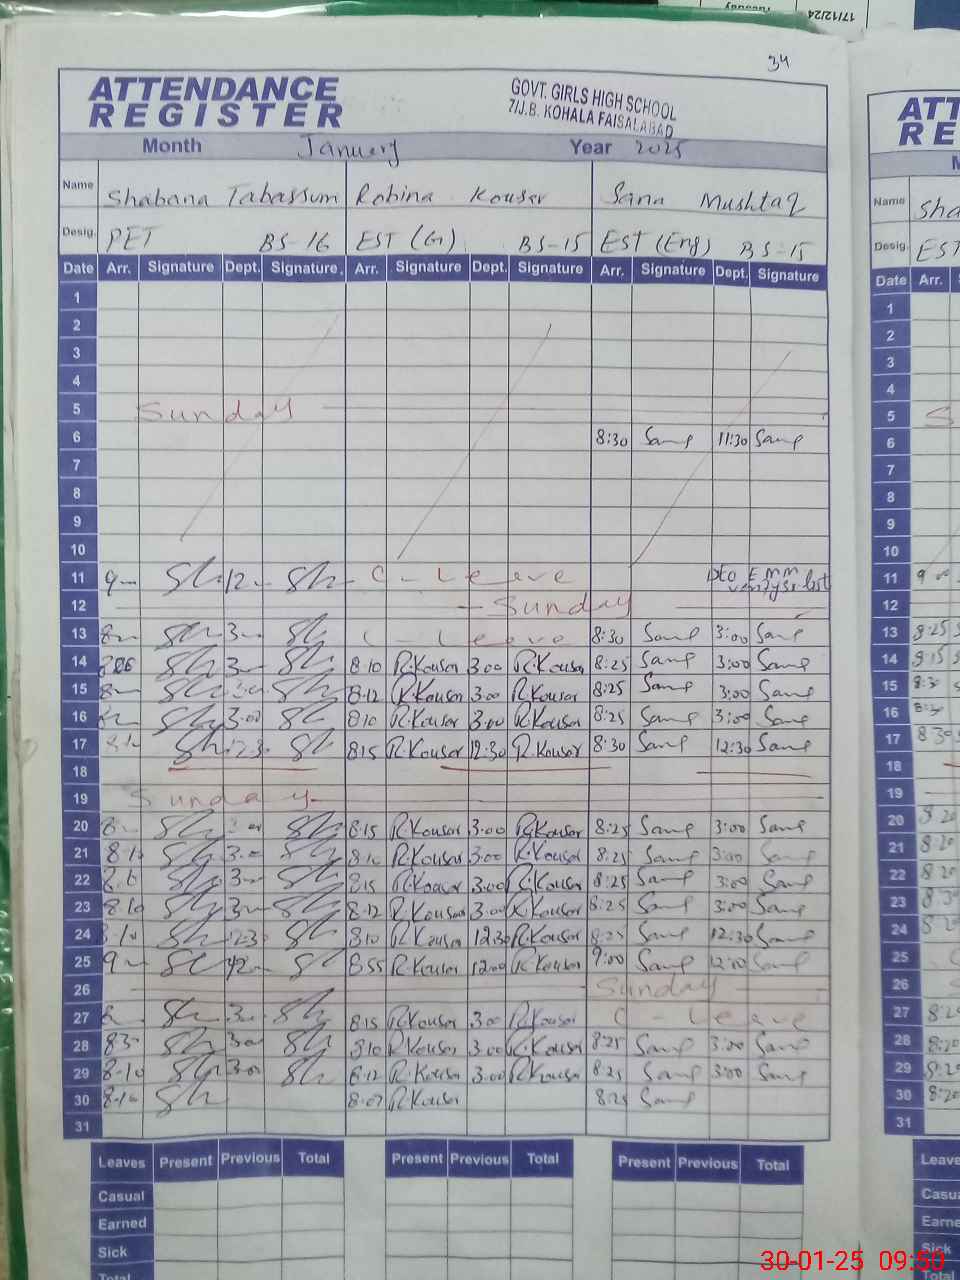 17/12/24 Tuesday
34
ATTENDANCE REGISTER
GOVT. GIRLS HIGH SCHOOL
7/J.B. KOHALA FAISALABAD
Month January Year 2025
Name Shabana Tabassum Robina Kousar Sana Mushtaq
Desig. PET BS-16 EST (G) BS-15 EST (Eng) BS-15
Date Arr. Signature Dept. Signature Arr. Signature Dept. Signature Arr. Signature Dept. Signature
1
2
3
4
5 Sunday
6 8:30 Sana 11:30 Sana
7
8
9
10
11 9 Sh 12 Sh C-Leave
12 Sunday
13 Sh 3 Sh C-Leave 8:30 Sana 3:00 Sana
14 Sh 3 Sh 8:10 R.Kousar 3:00 R.Kousar 8:25 Sana 3:00 Sana
15 Sh Sh 8:12 R.Kousar 3:00 R.Kousar 8:25 Sana 3:00 Sana
16 Sh 3:00 Sh 8:10 R.Kousar 3:00 R.Kousar 8:25 Sana 3:00 Sana
17 Sh Sh 8:15 R.Kousar 12:30 R.Kousar 8:30 Sana 12:30 Sana
18
19 Sunday
20 Sh Sh 8:15 R.Kousar 3:00 R.Kousar 8:25 Sana 3:00 Sana
21 Sh 3:00 Sh 8:10 R.Kousar 3:00 R.Kousar 8:25 Sana 3:00 Sana
22 Sh 3 Sh 8:15 R.Kousar 3:00 R.Kousar 8:25 Sana 3:00 Sana
23 8:10 Sh 3 Sh 8:12 R.Kousar 3:00 R.Kousar 8:25 Sana 3:00 Sana
24 Sh 12:30 Sh 8:10 R.Kousar 12:30 R.Kousar 8:25 Sana 12:30 Sana
25 9 Sh 12 Sh 8:55 R.Kousar 12:00 R.Kousar 9:00 Sana 12:00 Sana
26 Sunday
27 Sh 3 Sh 8:15 R.Kousar 3:00 R.Kousar C-Leave
28 Sh 3:00 Sh 8:10 R.Kousar 3:00 R.Kousar 8:25 Sana 3:00 Sana
29 8:10 Sh 3:00 Sh 8:12 R.Kousar 3:00 R.Kousar 8:25 Sana 3:00 Sana
30 8:10 Sh 8:07 R.Kousar 8:25 Sana
31
Leaves Present Previous Total Present Previous Total Present Previous Total
Casual
Earned
Sick
Total
Name
Desig. EST
Date Arr.
1
2
3
4
5
6
7
8
9
10
11
12
13 8:25
14 8:15
15 8:30
16 8:30
17 8:30
18
19
20 8:20
21 8:20
22 8:20
23
24
25
26
27
28 8:20
29
30 8:20
31
30-01-25 09:50